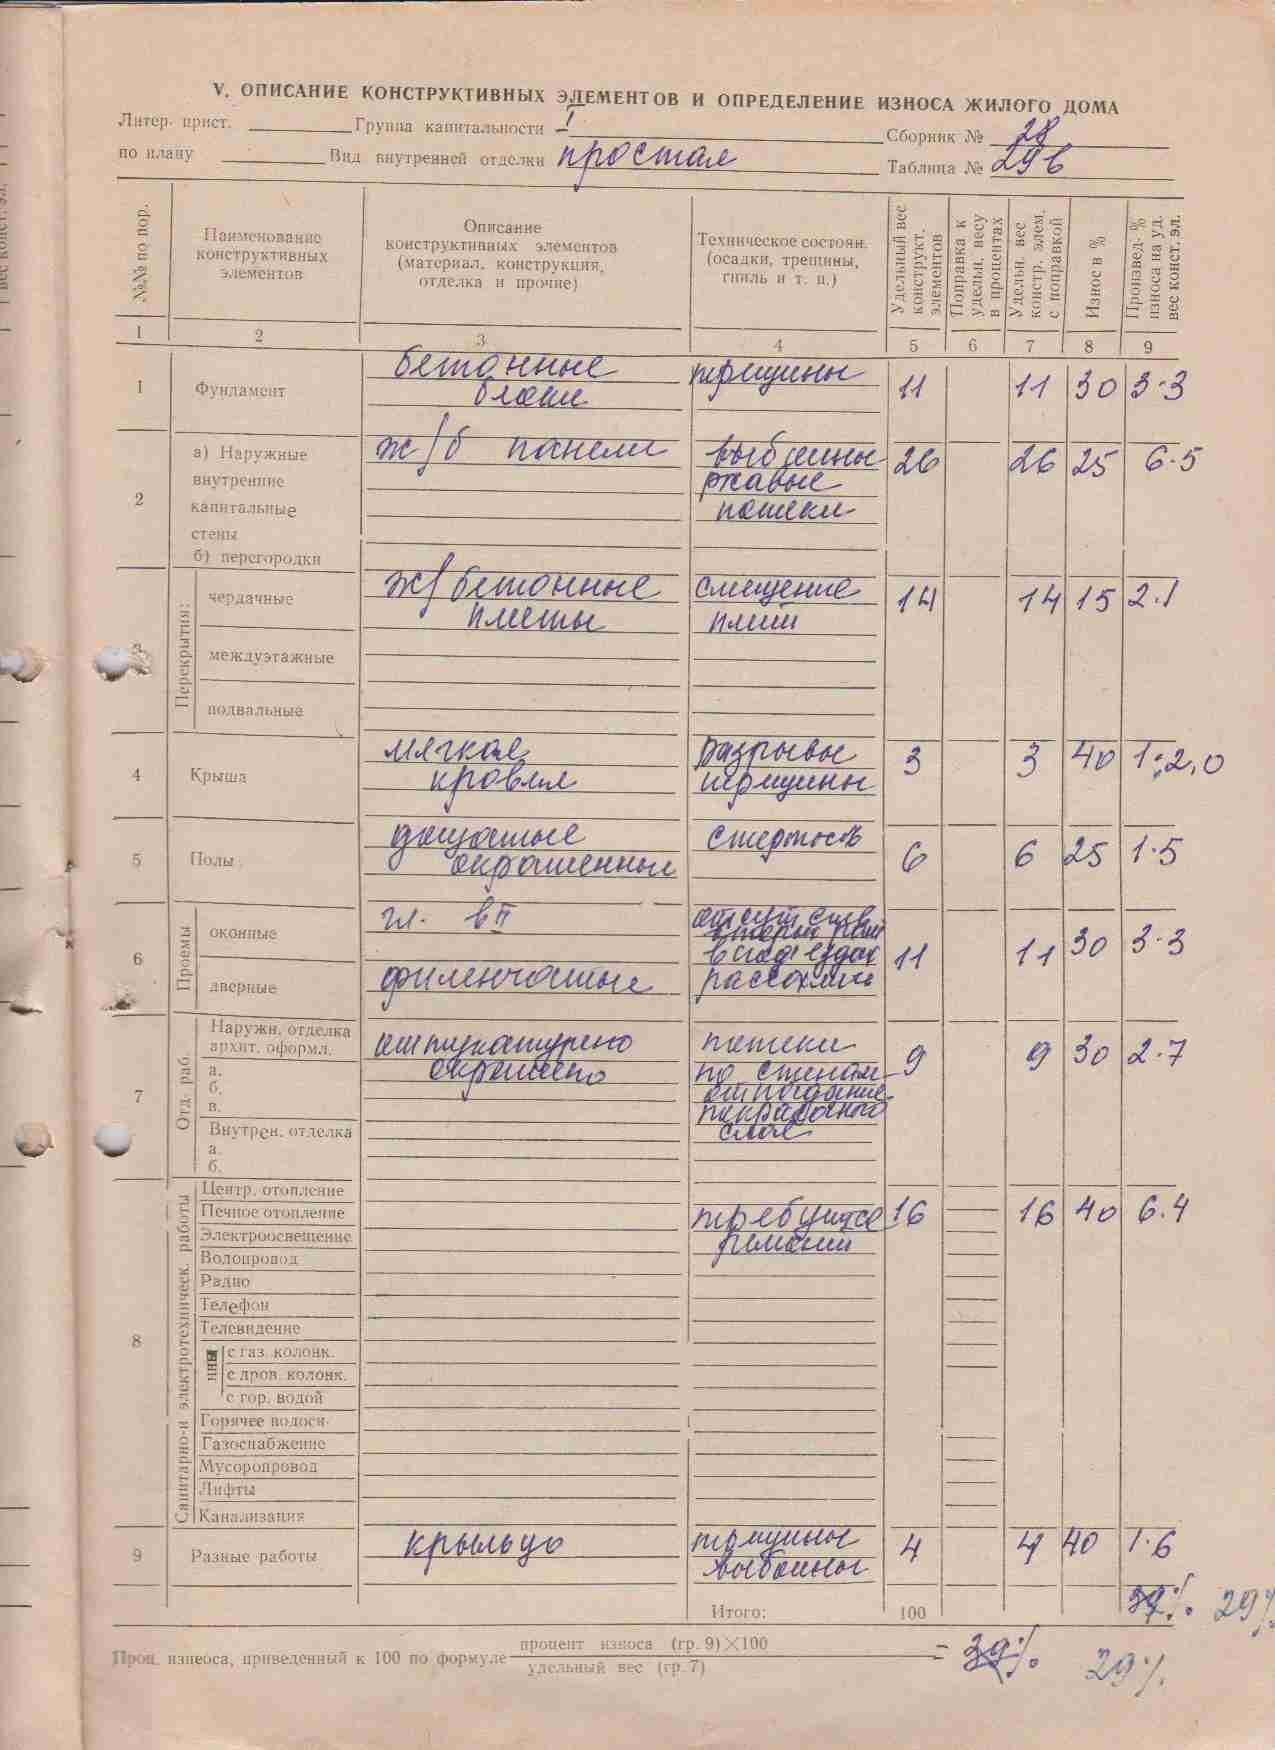 V. ОПИСАНИЕ КОНСТРУКТИВНЫХ ЭЛЕМЕНТОВ И ОПРЕДЕЛЕНИЕ ИЗНОСА ЖИЛОГО ДОМА
Литер. прист. Группа капитальности I Сборник № 28
по плану Вид внутренней отделки простая Таблица № 29в
№№ по пор.
Наименование конструктивных элементов
Описание конструктивных элементов (материал, конструкция, отделка и прочие)
Техническое состоян. (осадки, трещины, гниль и т. п.)
Удельный вес конструкт. элементов
Поправка к удельн. весу в процентах
Удельн. вес констр. элем. с поправкой
Износ в %
Произвед. % износа на уд. вес конст. эл.
1 2 3 4 5 6 7 8 9
1 Фундамент бетонные блоки трещины 11 11 30 3.3
2 а) Наружные внутренние капитальные стены ж/б панели выбоины ржавые потеки 26 26 25 6.5
б) перегородки
3 Перекрытия:
чердачные ж/бетонные плиты смещение плит 14 14 15 2.1
междуэтажные
подвальные
4 Крыша мягкая кровля разрывы трещины 3 3 40 1.2,0
5 Полы дощатые окрашенные стертость 6 6 25 1.5
6 Проемы
оконные гл. в подъездах 11 11 30 3.3
дверные филенчатые рассохлись
7 Отд. раб.
Наружн. отделка архит. оформл. оштукатурено окрашено потеки по стенам отпадание покрасочного слоя 9 9 30 2.7
а.
б.
в.
Внутрен. отделка
а.
б.
8 Санитарно-и электротехническ. работы
Центр. отопление
Печное отопление требуется ремонт 16 16 40 6.4
Электроосвещение
Водопровод
Радио
Телефон
Телевидение
нны
с газ. колонк.
с дров. колонк.
с гор. водой
Горячее водосн.
Газоснабжение
Мусоропровод
Лифты
Канализация
9 Разные работы крыльцо трещины выбоины 4 4 40 1.6
Итого: 100 29%
Проц. износа, приведенный к 100 по формуле процент износа (гр. 9)×100 = 29%
удельный вес (гр. 7)